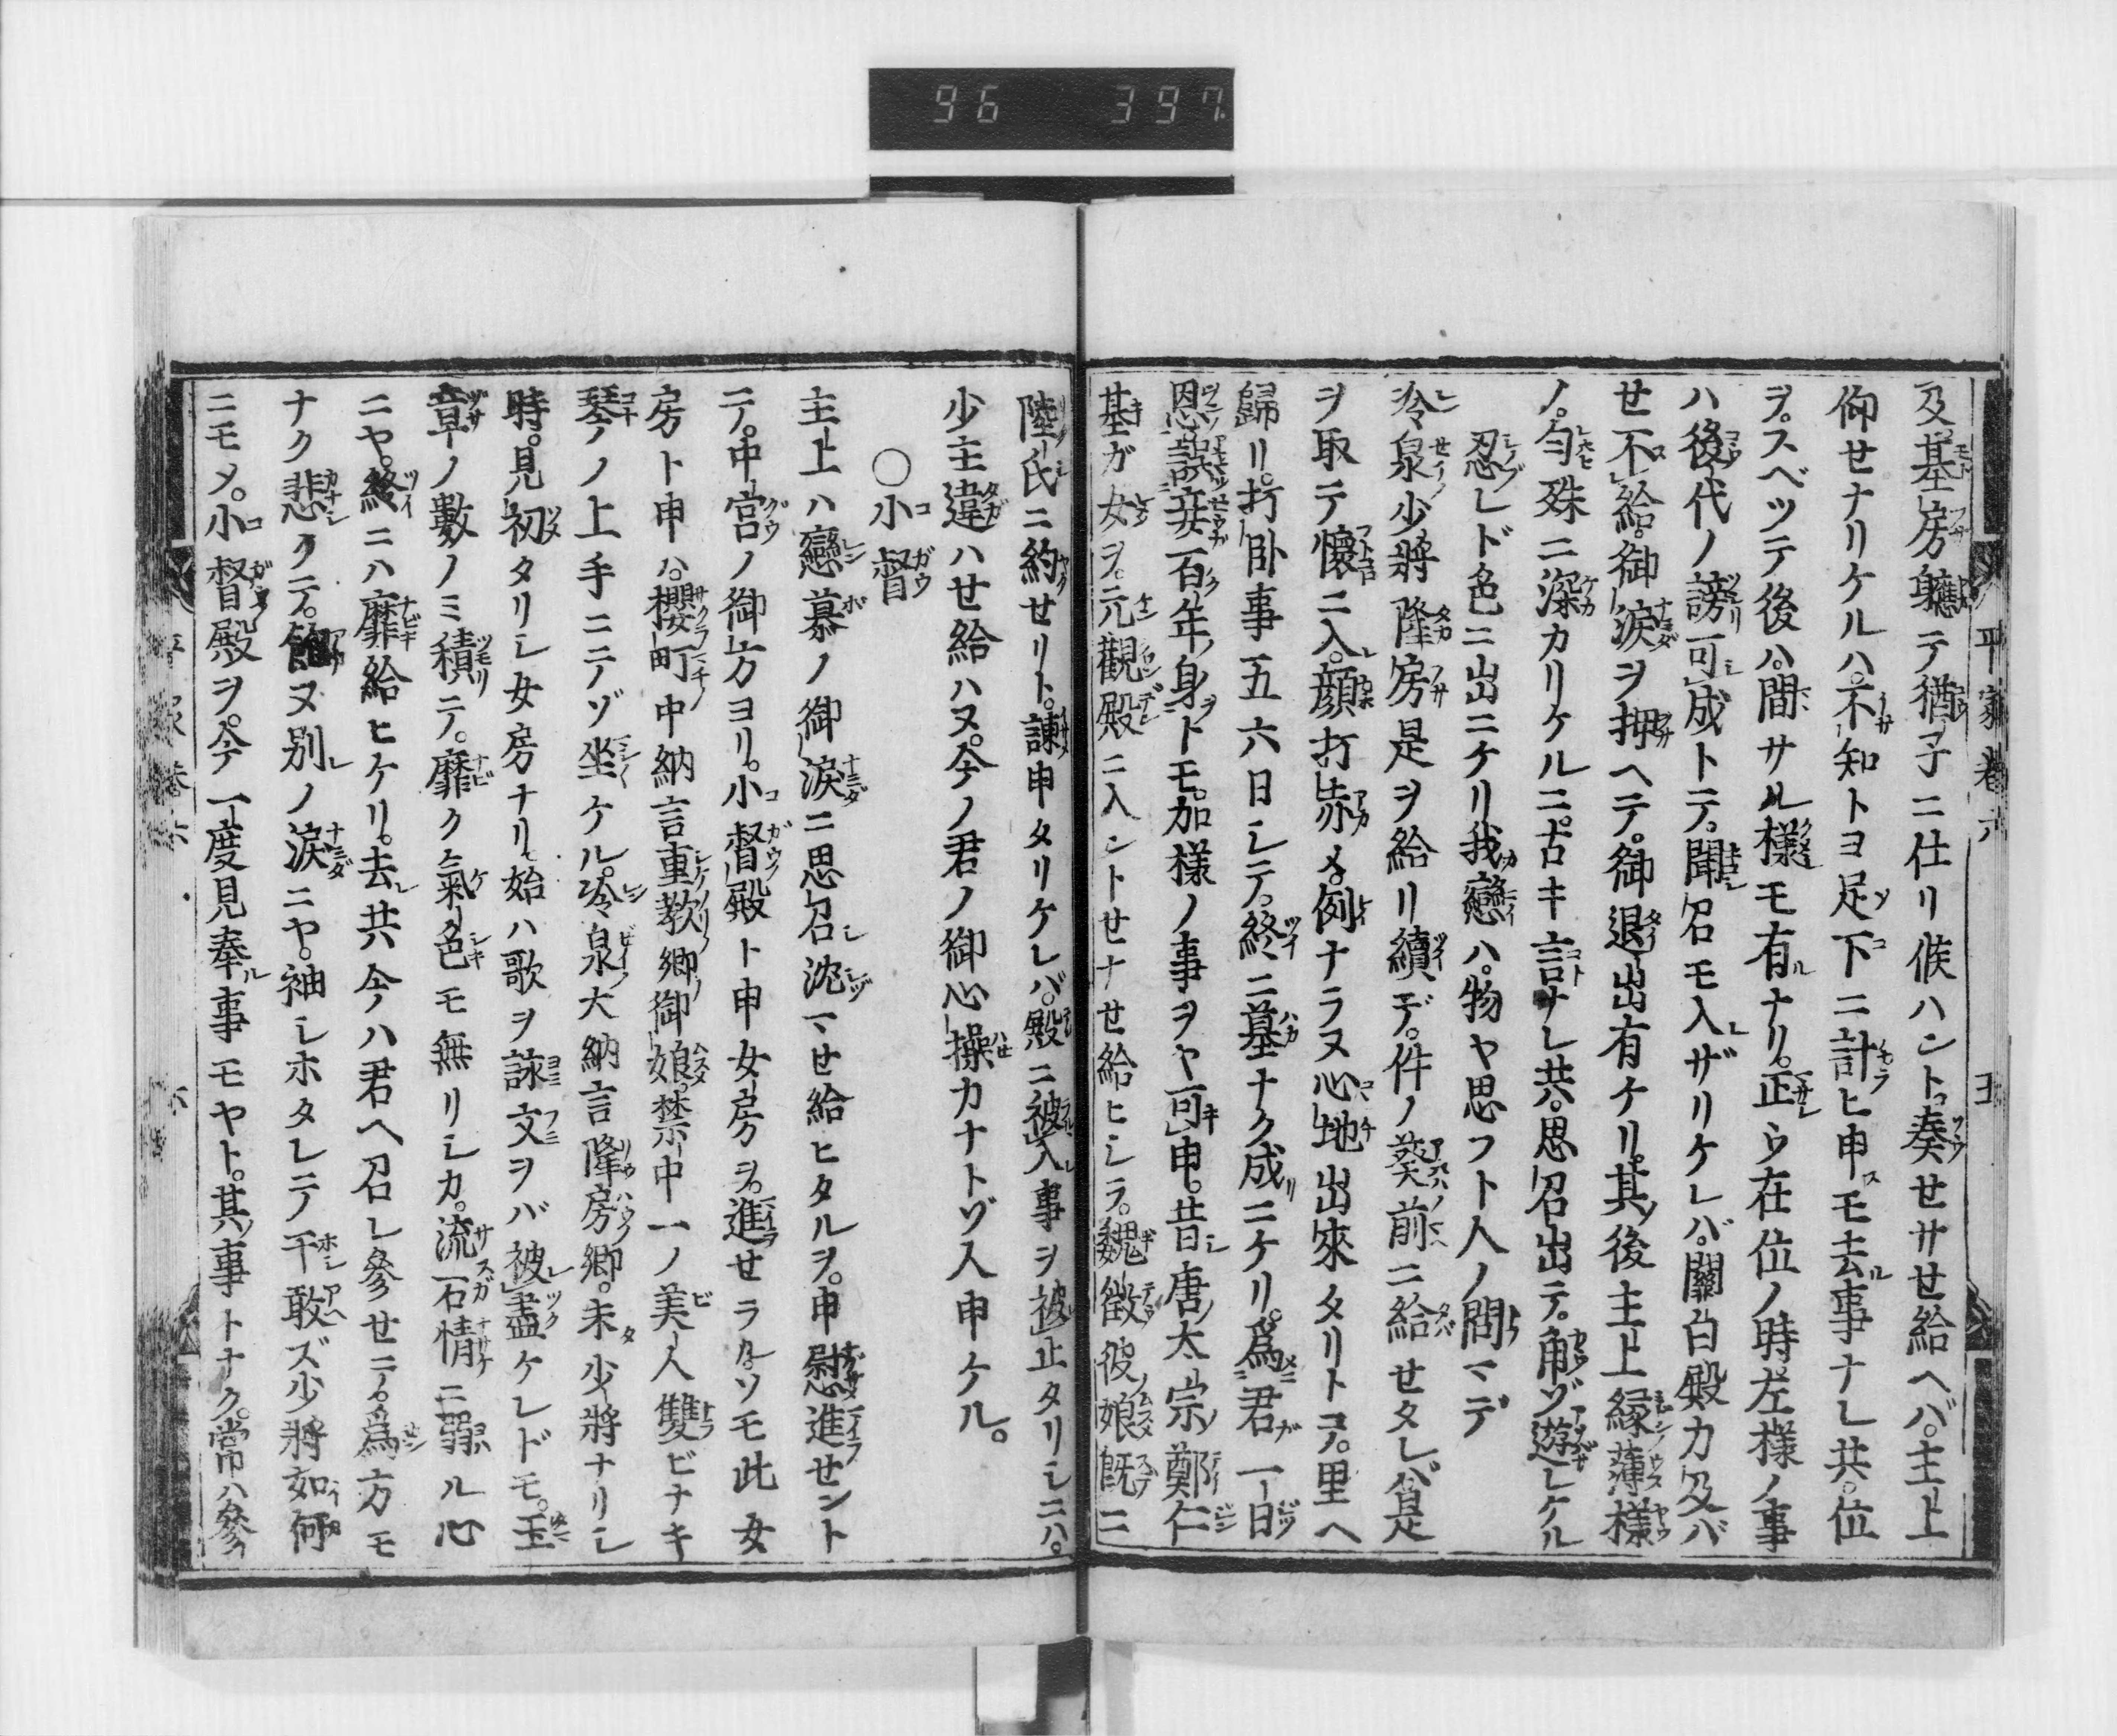 96 397
平家巻六 五
及基房軈テ猶子ニ仕リ候ハント奏せサせ給ヘバ。主上
仰せナリケルハ。不知トヨ足下ニ計ヒ申スモ去ル事ナレ共。位
ヲ。スベツテ後ハ。間サル様モ有ルナリ。正シウ在位ノ時。左様ノ事
ハ後代ノ謗可成トテ。聞召モ入レザリケレバ。關白殿力及バ
せ不給。御涙ヲ押ヘテ。御退出有ケリ。其後主上緑薄様
ノ。匂殊ニ深カリケルニ。古キ言ナレ共。思召出テ。角ゾ遊レケル
忍レド色ニ出ニケリ我戀ハ。物ヤ思フト人ノ問マデ
冷泉少將隆房是ヲ給リ續デ。件ノ葵前ニ給せタレバ。是
ヲ取テ懷ニ入。顔打赤メ。例ナラヌ心地出來タリトテ。里ヘ
歸リ。打臥事五六日シテ。終ニ墓ナク成ニケリ。爲君ガ一日
恩誤妾百年身トモ。加様ノ事ヲヤ可申。昔シ唐ノ太宗ノ鄭仁
基ガ女ヲ。元觀殿ニ入ントせナせ給ヒシヲ。魏徴彼娘既ニ
陸氏ニ約せリト。諫申タリケレバ。殿ニ被入事ヲ被止タリシニハ。
少主違ハせ給ハヌ。今ノ君ノ御心操カナトゾ人申ケル。
○小督
主上ハ戀慕ノ御涙ニ思召沈マせ給ヒタルヲ。申慰進せント
テ。中宮ノ御方ヨリ。小督殿ト申女房ヲ。進せラル。ソモ此女
房ト申ハ。櫻町中納言重教卿ノ御娘。禁中一ノ美人雙ビナキ
琴ノ上手ニテゾ坐ケル。冷泉大納言隆房卿。未少將ナリシ
時。見初タリシ女房ナリ。始ハ歌ヲ詠文ヲバ被盡ケレドモ。玉
章ノ數ノミ積テ。靡ク氣色モ無リシカ。流石情ニ弱ル心
ニヤ。終ニハ靡給ヒケリ。去共今ハ君ヘ召レ參せテ。爲方モ
ナク悲クテ。飽ヌ別ノ涙ニヤ。袖シホタレテ干敢ズ少將如何
ニモメ。小督殿ヲ。今一度見奉ル事モヤト。其事トナク。常ハ參